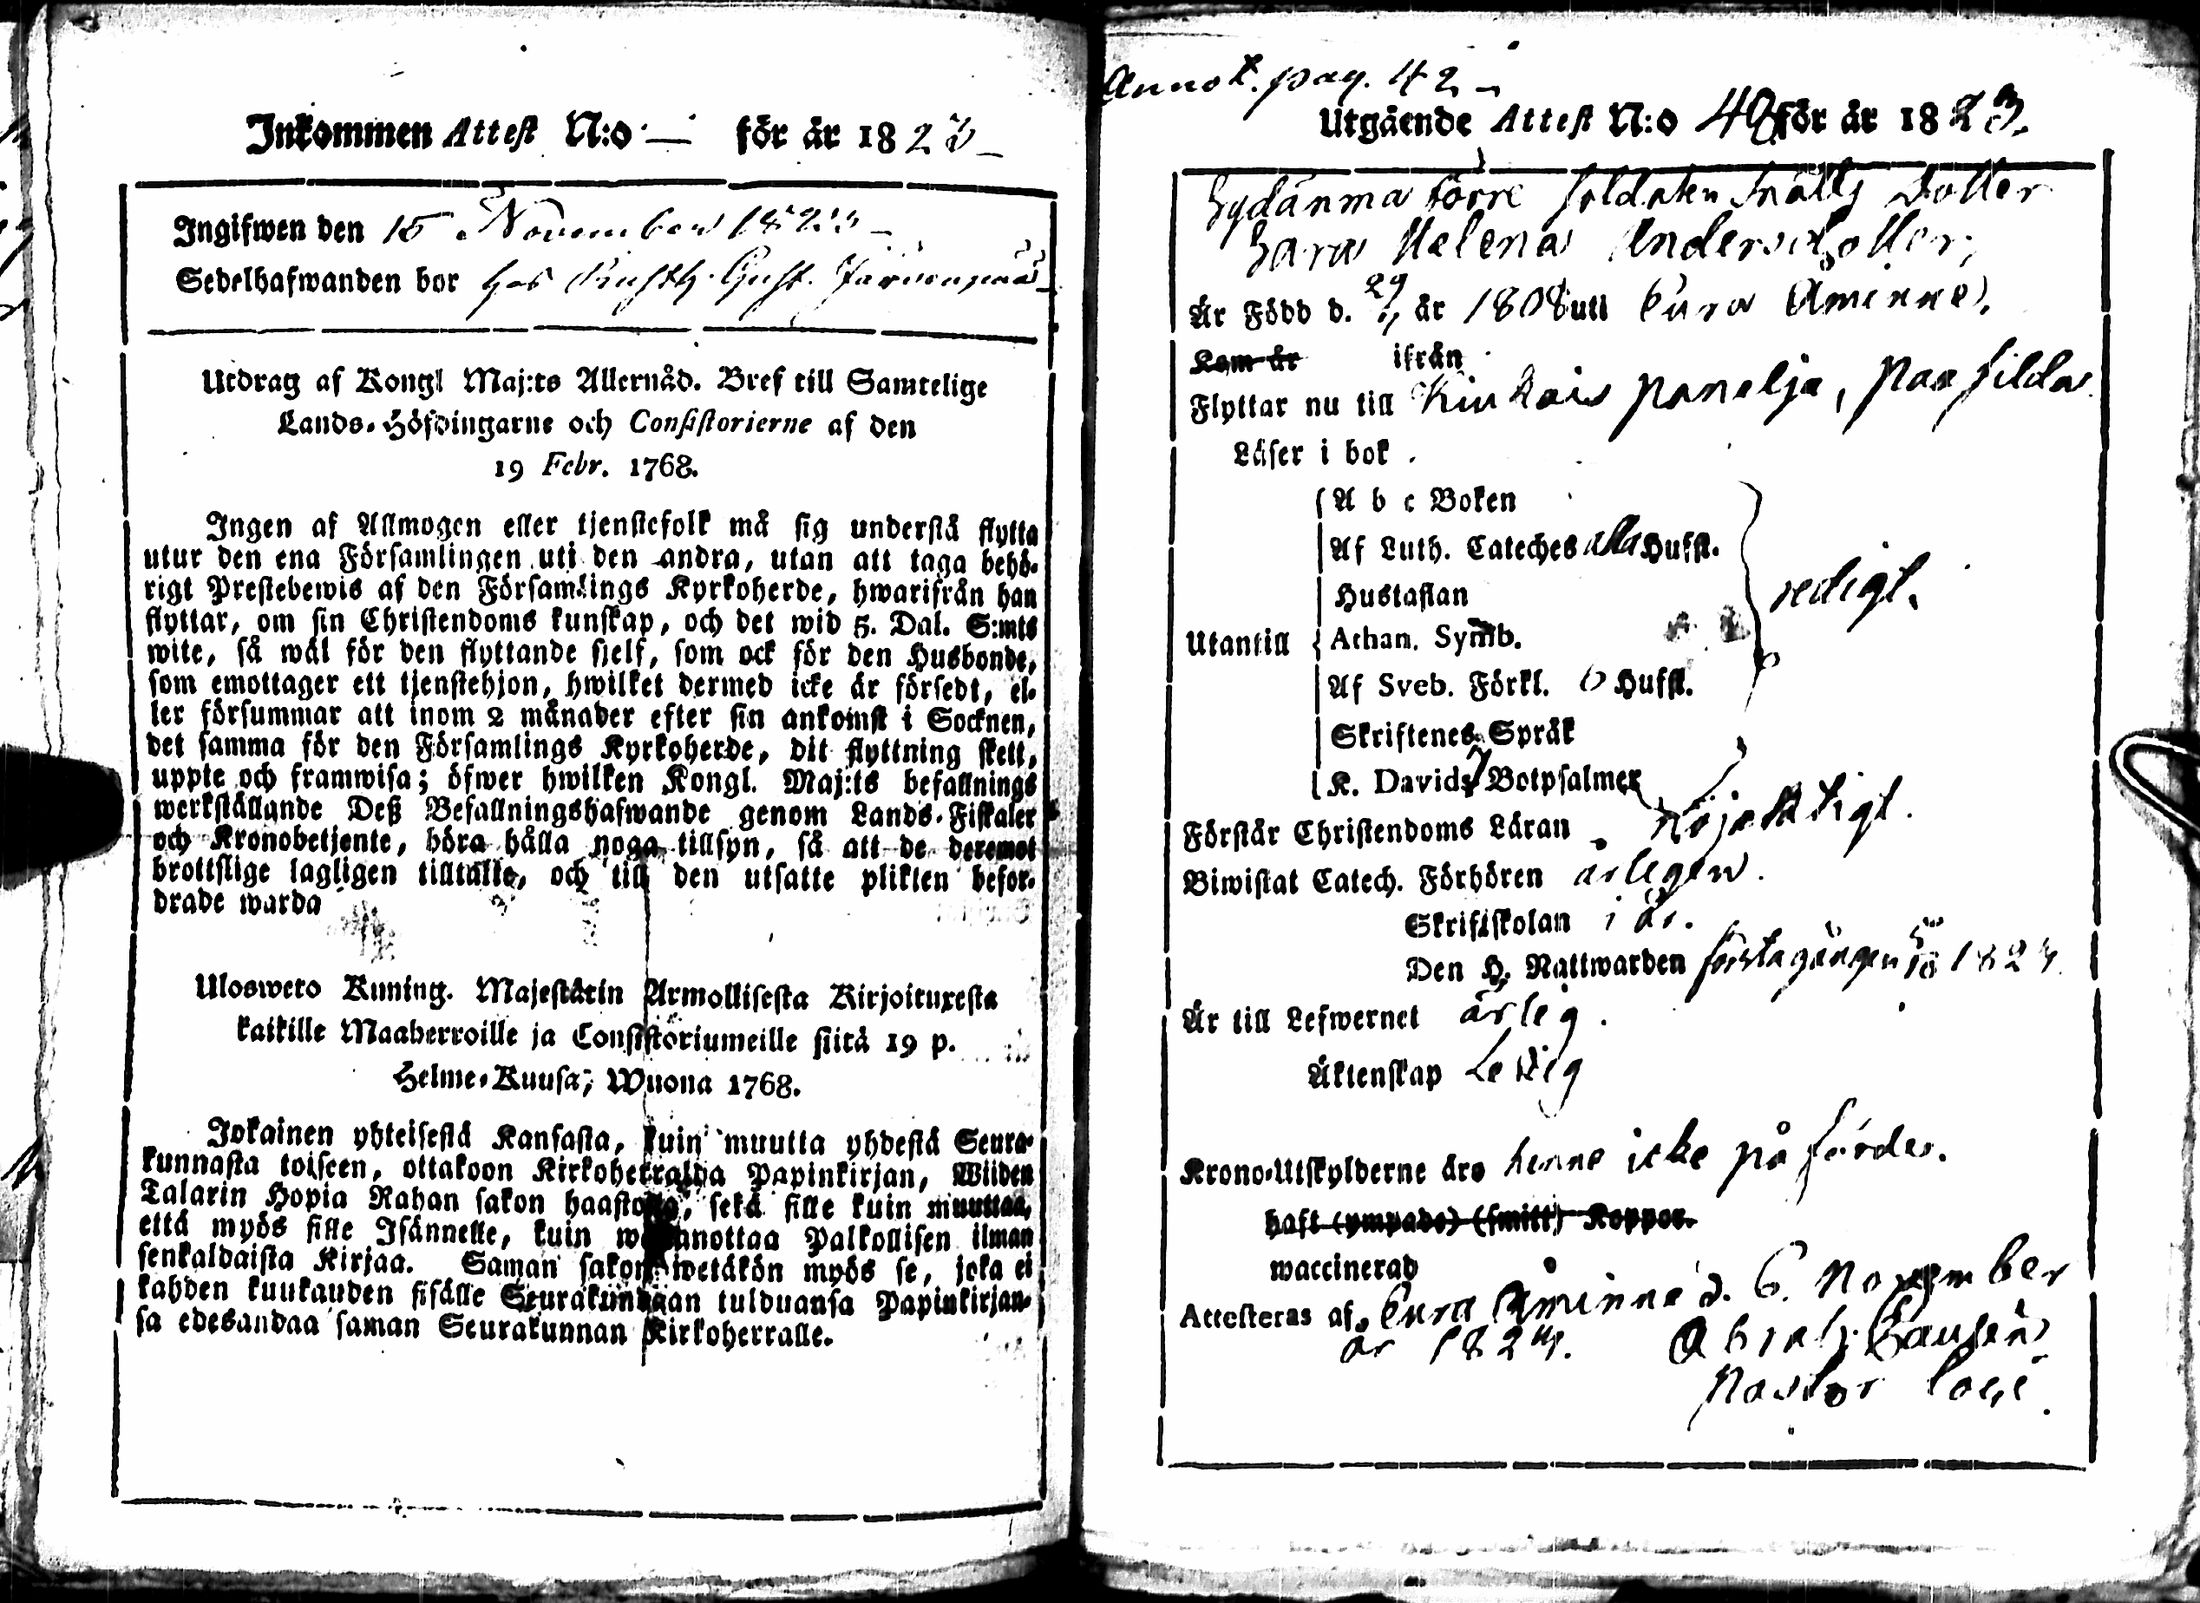 Inkommen Attest N:o — för år 1823
Ingifwen den 15 November 1823
Sedelhafwanden bor hos Gust. Järvenpää
Utdrag af Kongl Maj:ts Allernåd. Bref till Samtelige
Lands-Höfdingarne och Consistorierne af den
19 Febr. 1768.
Ingen af Allmogen eller tjenstefolk må sig understå flytta
utur den ena Församlingen uti den andra, utan att taga behö-
rigt Prestebewis af den Församlings Kyrkoherde, hwarifrån han
flyttar, om sin Christendoms kunskap, och det wid 5. Dal. S:mts
wite, så wäl för den flyttande sjelf, som ock för den Husbonde,
som emottager ett tjenstehjon, hwilket dermed icke är försedt, el-
ler försummar att inom 2 månader efter sin ankomst i Socknen,
det samma för den Församlings Kyrkoherde, dit flyttning skett,
uppte och framwisa; öfwer hwilken Kongl. Maj:ts befallnings
werkställande Deß Befallningshafwande genom Lands-Fiskaler
och Kronobetjente, böra hålla noga tillsyn, så att de deremot
brottslige lagligen tilltalte, och till den utsatte plikten befor-
drade warda
Ulosweto Kuning. Majestätin Armollisesta Kirjoituxesta
kaikille Maaherroille ja Consistoriumeille siitä 19 p.
Helme-Kuusa, Wuona 1768.
Jokainen yhteisestä Kansasta, kuin muutta yhdestä Seura-
kunnasta toiseen, ottakoon Kirkoherralda Papinkirjan, Wiiden
Talarin Hopia Rahan sakon haastolla, sekä sille kuin muuttaa,
että myös sille Isännelle, kuin wastanottaa Palkollisen ilman
senkaldaista Kirjaa. Saman sakon wetäkön myös se, joka ei
kahden kuukauden sisälle Seurakundaan tulduansa Papinkirjan-
sa edesandaa saman Seurakunnan Kirkoherralle.
Annot. pag. 42
Utgående Attest N:o 48 för år 1823.
Sydänma förre soldaten Dotter
Sara Helena Andersdotter,
Är Född d. 29 år 1808 uti Eura Åminne,
Kom år ifrån
Flyttar nu till Kiukais Panelja,
Läser i bok
A b c Boken
Af Luth. Cateches alla Hufst.
Hustaflan
Utantill Athan. Symb.
Af Sveb. Förkl. 6 Hufst.
redigt.
Skriftenes Språk
K. Davids 7 Botpsalmer
Förstår Christendoms Läran nöjaktigt.
Biwistat Catech. Förhören årligen.
Skriftskolan i år.
Den H. Nattwarden första gången
Är till Lefwernet ärlig.
Äktenskap Ledig
Krono-Utskylderne äro henne icke påförde.
haft (ympade) (smitt) Koppor.
waccinerad
Attesteras af, Eura Åminne d. 6. November
år 1823.
Pastor loci.